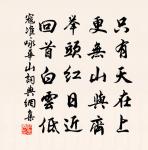 只有天在上
更無山與齊
舉頭紅日近
回首白雲低
寇準咏華山詞典網集